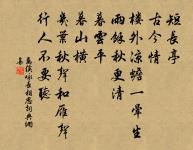 短長亭
古今情
樓外涼蟾一暈生
雨餘秋更清
暮雲平
暮山橫
幾葉秋聲和雁聲
行人不要聽
萬俟詠長相思詞